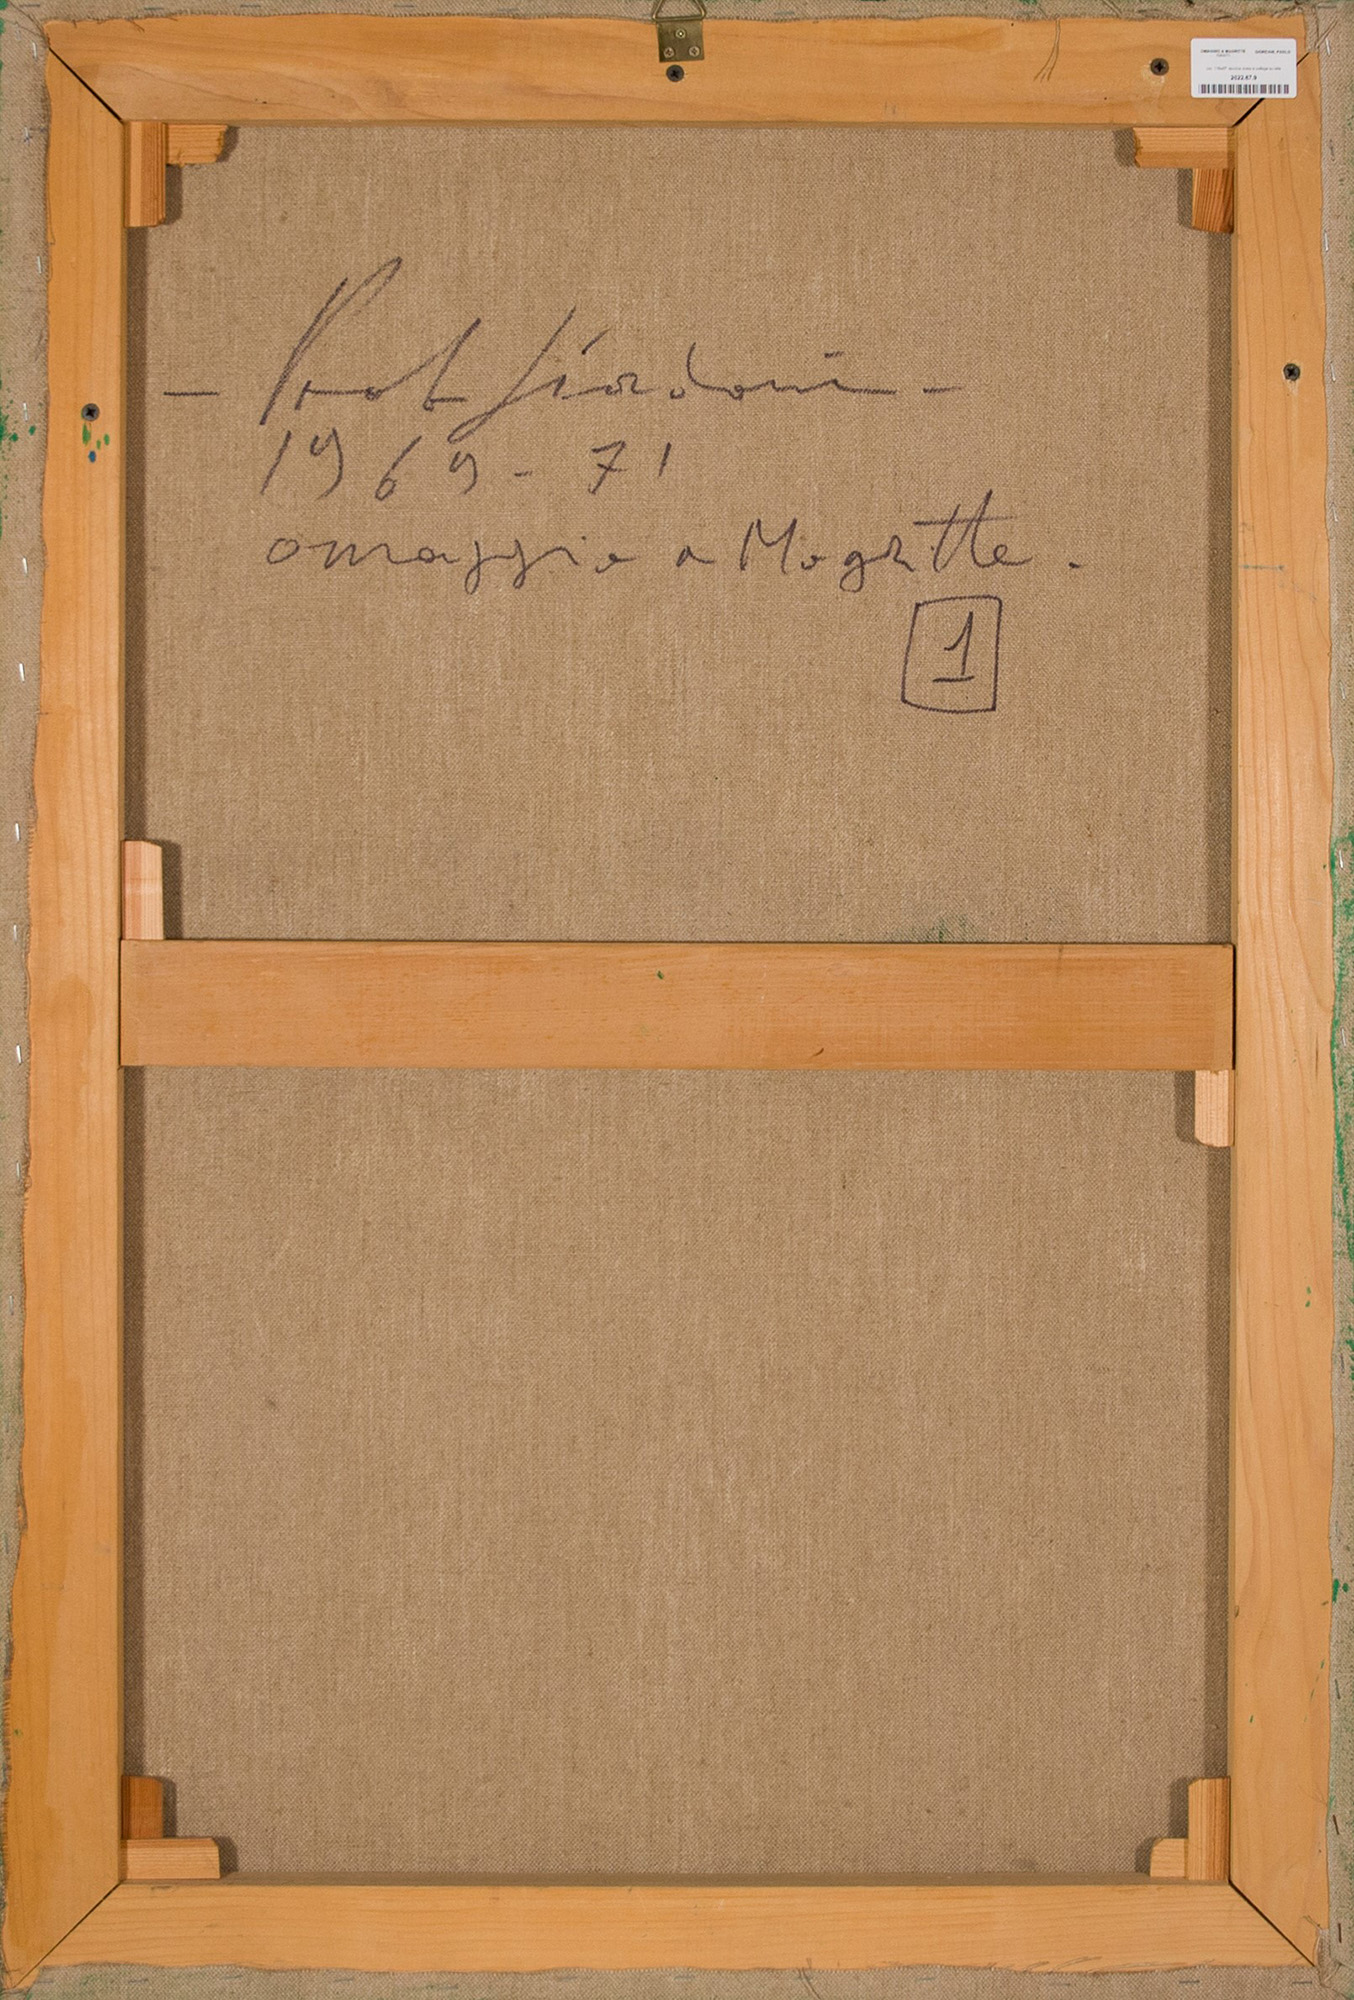 OMAGGIO A MAGRITTE GIORDANI, PAOLO
2022.67.9
- Paolo Giordani -
1969-71
omaggio a Magritte.
1